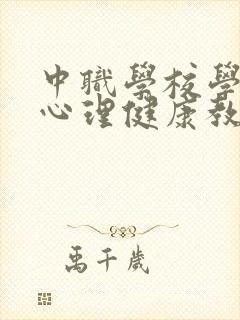 中職學校學
心理健康教
禹千歲